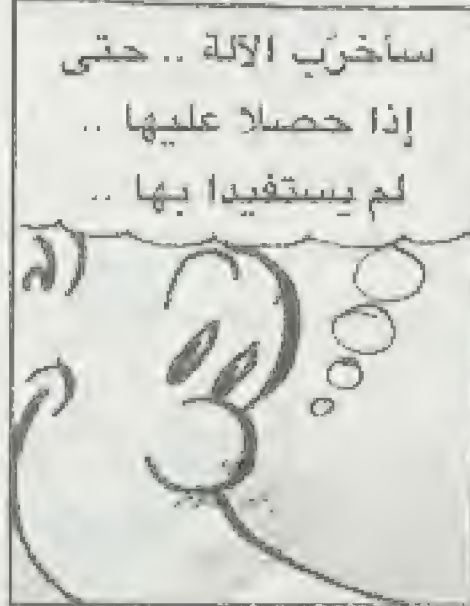 سأخرّب الآلة .. حتى
إذا حصلا عليها ..
لم يستفيدا بها ..